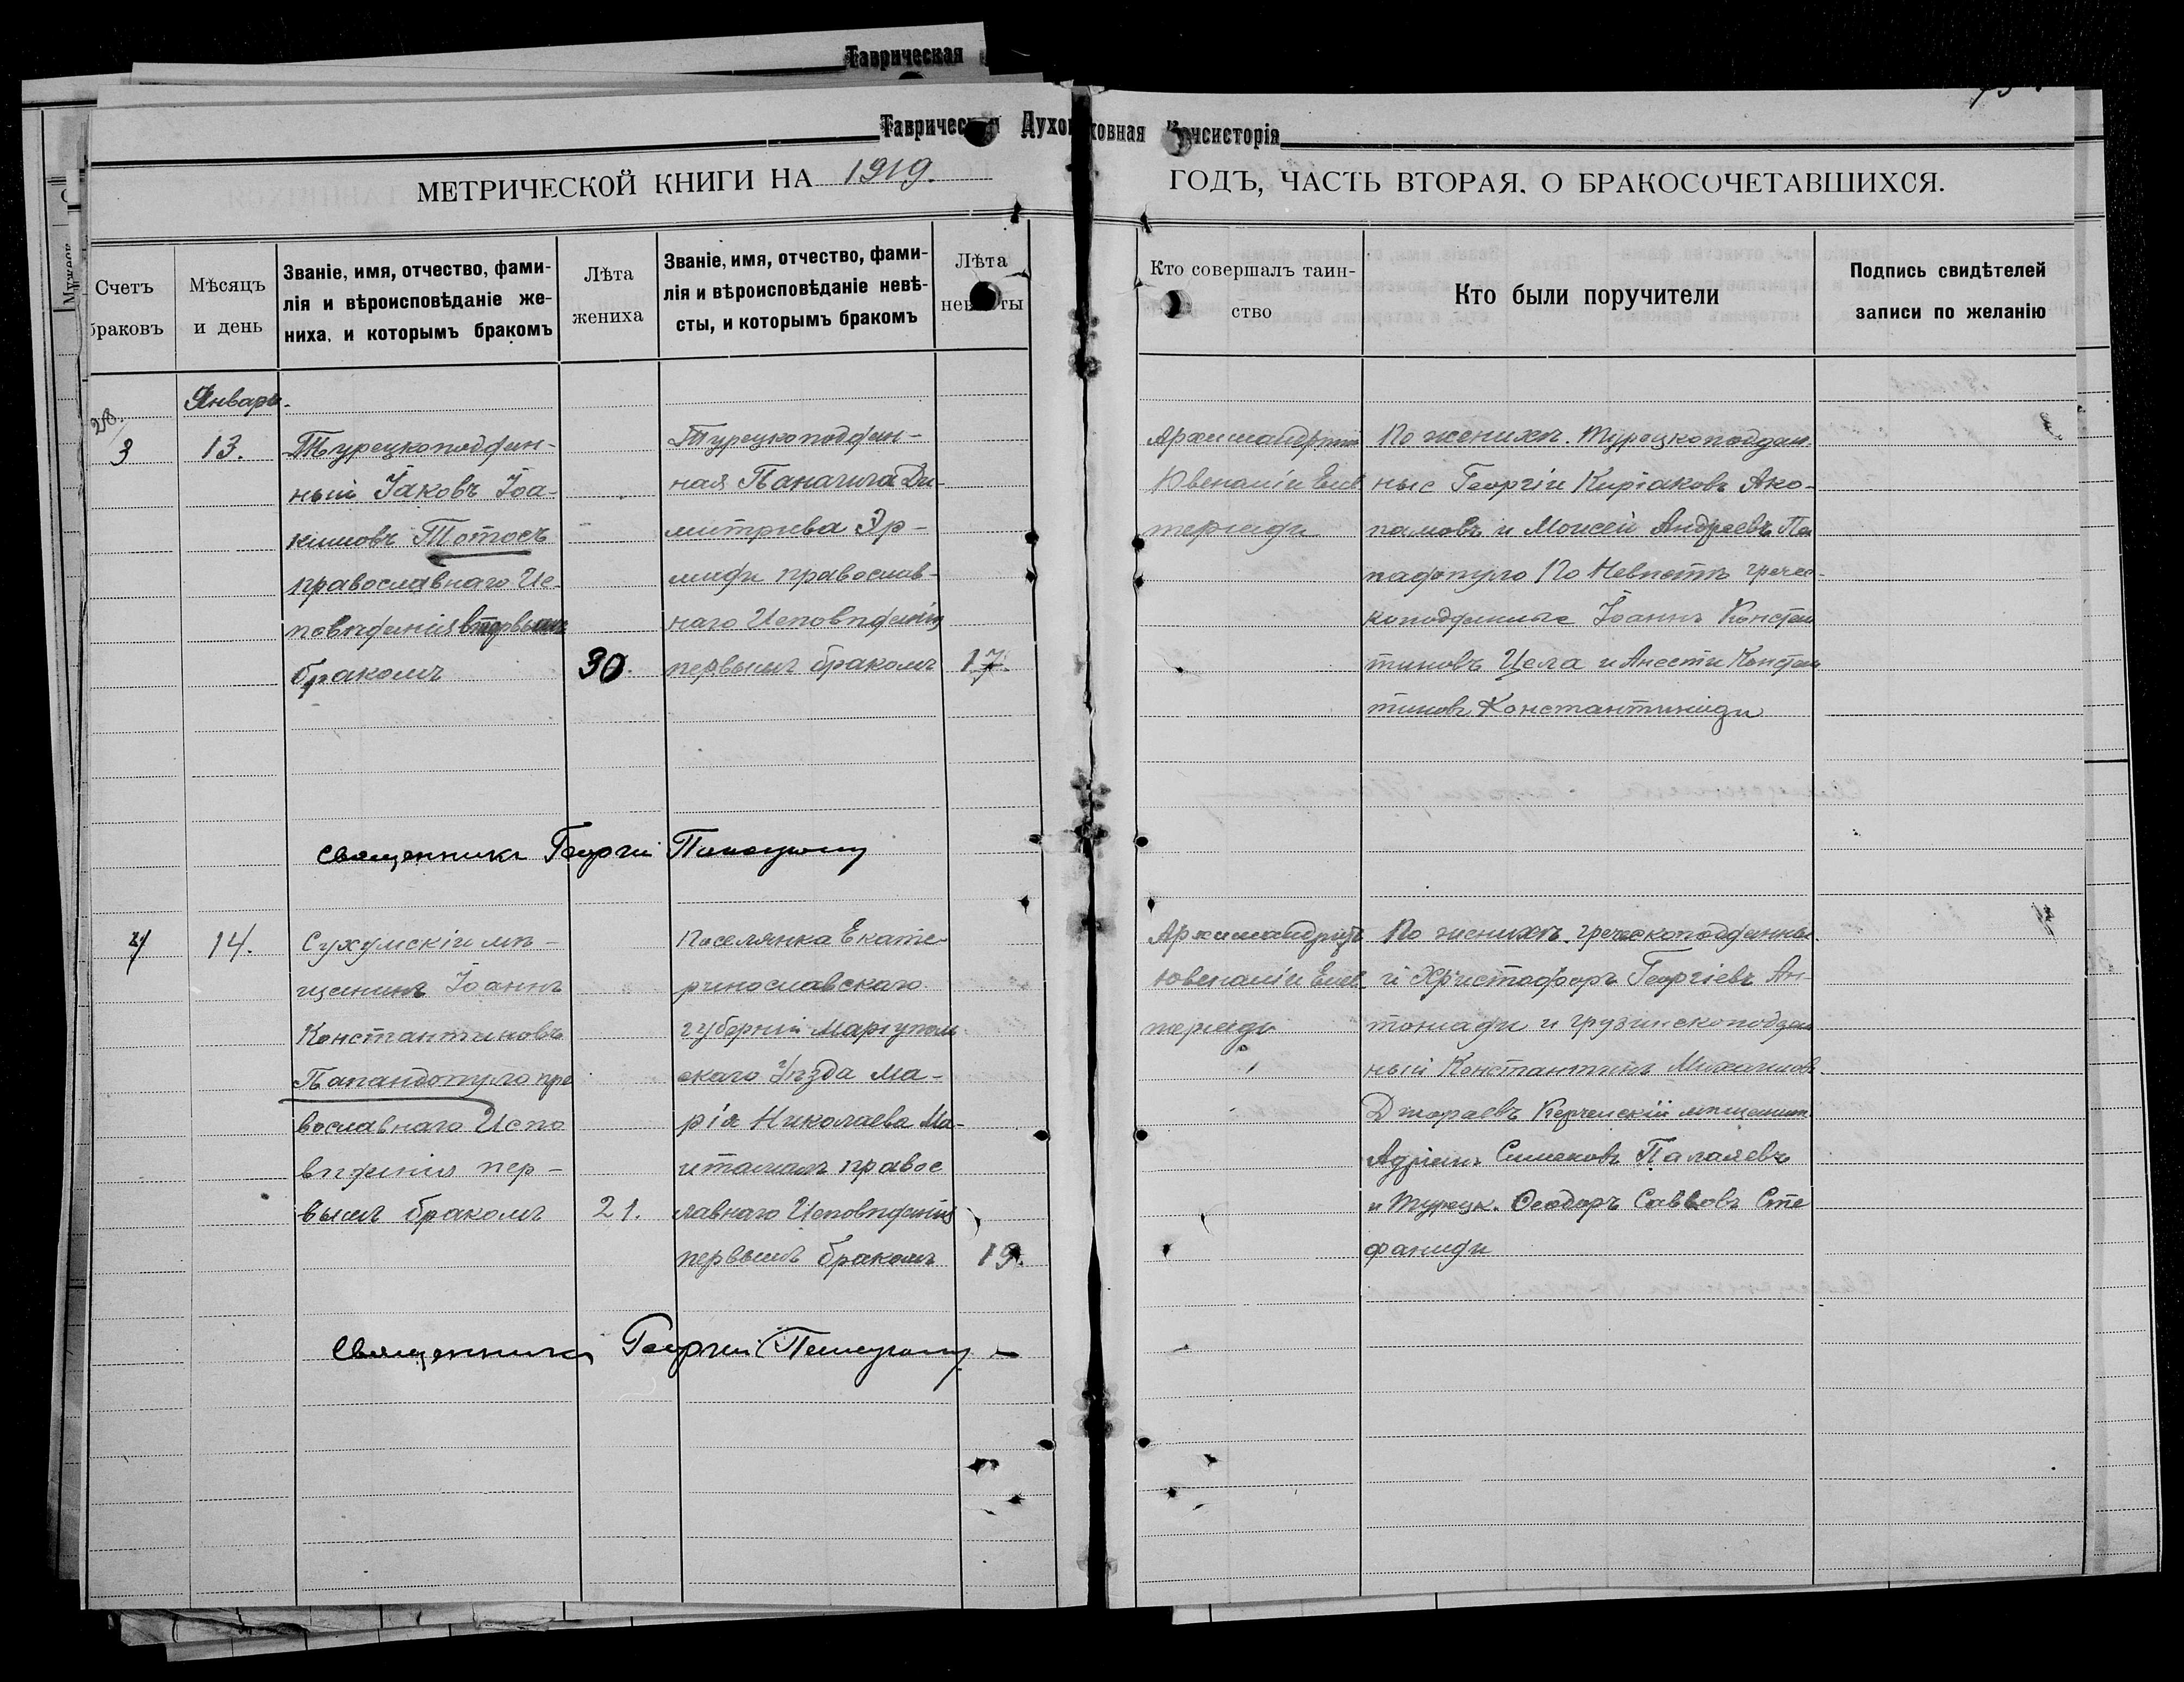 Таврическая
Таврическая Духовная Консисторія
МЕТРИЧЕСКОЙ КНИГИ НА 1919. ГОДЪ, ЧАСТЬ ВТОРАЯ, О БРАКОСОЧЕТАВШИХСЯ.
Счетъ браковъ
Мѣсяцъ и день
Званіе, имя, отчество, фами-
лія и вѣроисповѣданіе же-
ниха, и которымъ бракомъ
Лѣта
жениха
Званіе, имя, отчество, фами-
лія и вѣроисповѣданіе невѣ-
сты, и которымъ бракомъ
Лѣта
невѣсты
Кто совершалъ таин-
ство
Кто были поручители
Подпись свидѣтелей
записи по желанію
Январь.
3
13.
Турецкоподдан-
ный Іаковъ Іоа-
кимовъ Тотосъ
православнаго Ис-
повѣданія вторымъ
бракомъ
30.
Турецкоподдан-
ная Панагила Ди-
митріева Эр-
миди православ-
наго Исповѣданія
первымъ бракомъ
17.
Архимандритъ
Ювеналій Елев
теріади
По женихѣ. Турецкоподдан.
ные Георгій Киріаковъ Ако-
памовъ и Моисей Андреевъ Па
падопуло По Невѣстѣ гречес-
коподданные Іоаннъ Констан
тиновъ Цела и Анести Констан
тиновъ Константиниди
Священникъ Георгій
4
14.
Сухумскій мѣ-
щанинъ Іоаннъ
Константиновъ
Папандопуло пра
вославнаго Испо
вѣданія пер-
вымъ бракомъ
21.
Поселянка Екате-
ринославскаго
губерній Маріуполь
скаго Уѣзда Ма-
рія Николаева Ма-
итамалъ правос
лавнаго Исповѣданія
первымъ бракомъ
19.
Архимандритъ
Ювеналій Елев
теріади
По женихѣ. греческоподданны
й Христофоръ Георгіевъ Ан-
тониади и грузинскоподдан
ный Константинъ Михаиловъ
Джораевъ Керченскій мѣщанин.
Адріанъ Симеоновъ Палалаевъ
и Турецк. Ѳеодоръ Саввовъ Сте
фаниди
Священникъ Георгій